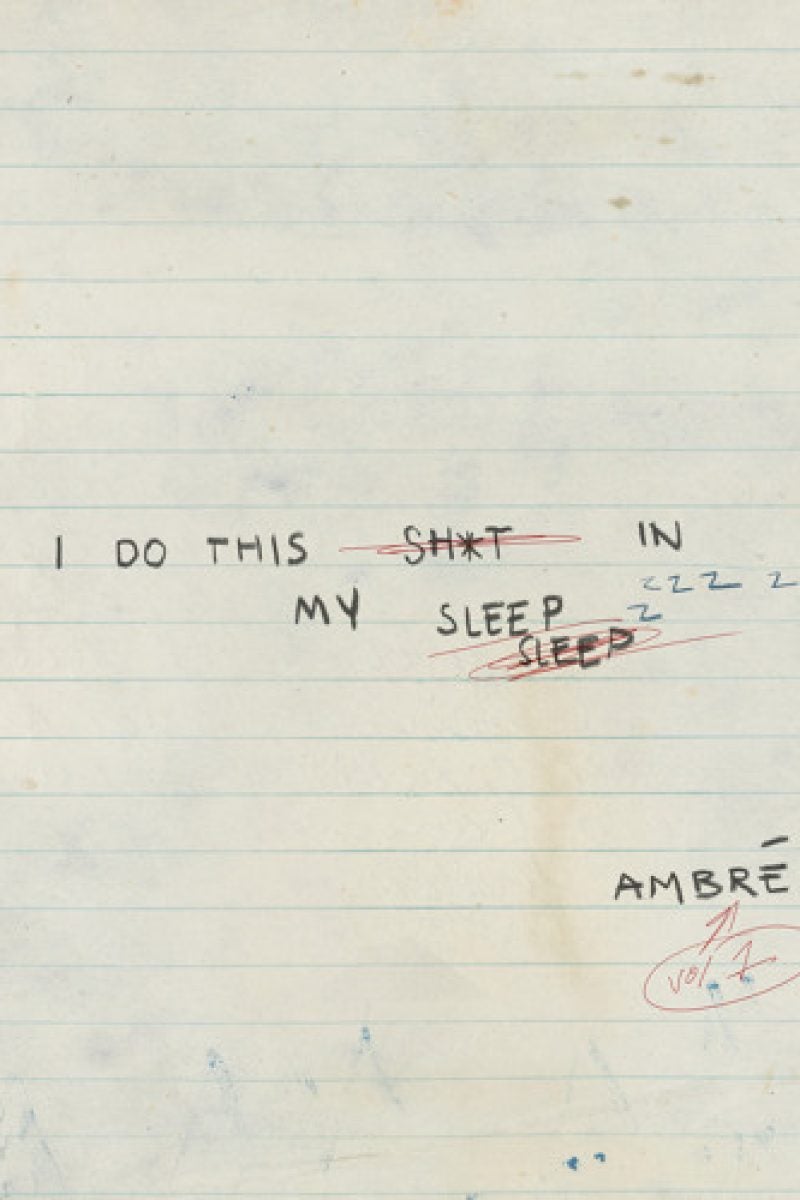 I DO THIS SH*T IN
MY SLEEP zzz z
z
SLEEP
AMBRÉ
vol. 1